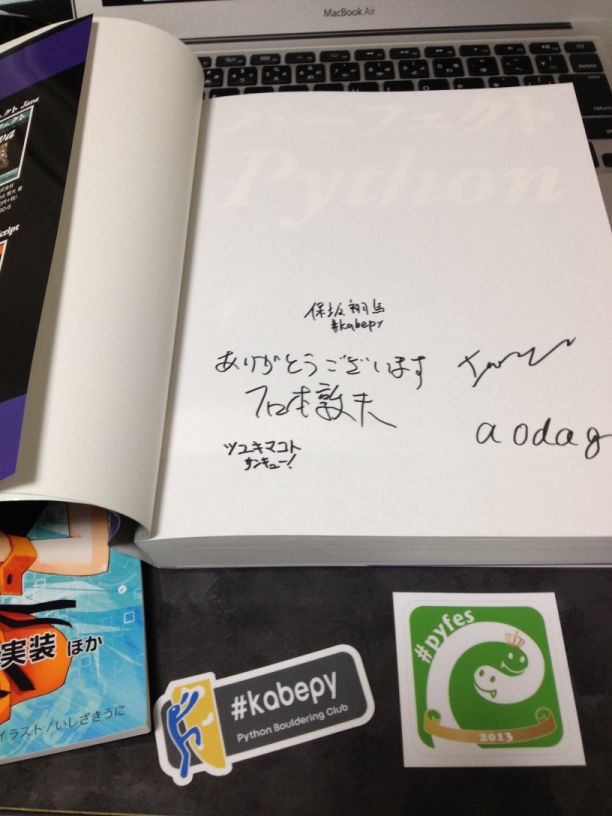 MacBook Air
パーフェクト
Python
保坂翔馬
#kabepy
ありがとうございます
石本敦夫
ツユキマコト
サンキュー!
aodag
実装 ほか
イラスト/いしざきうに
#kabepy
Python Bouldering Club
#pyfes
2013